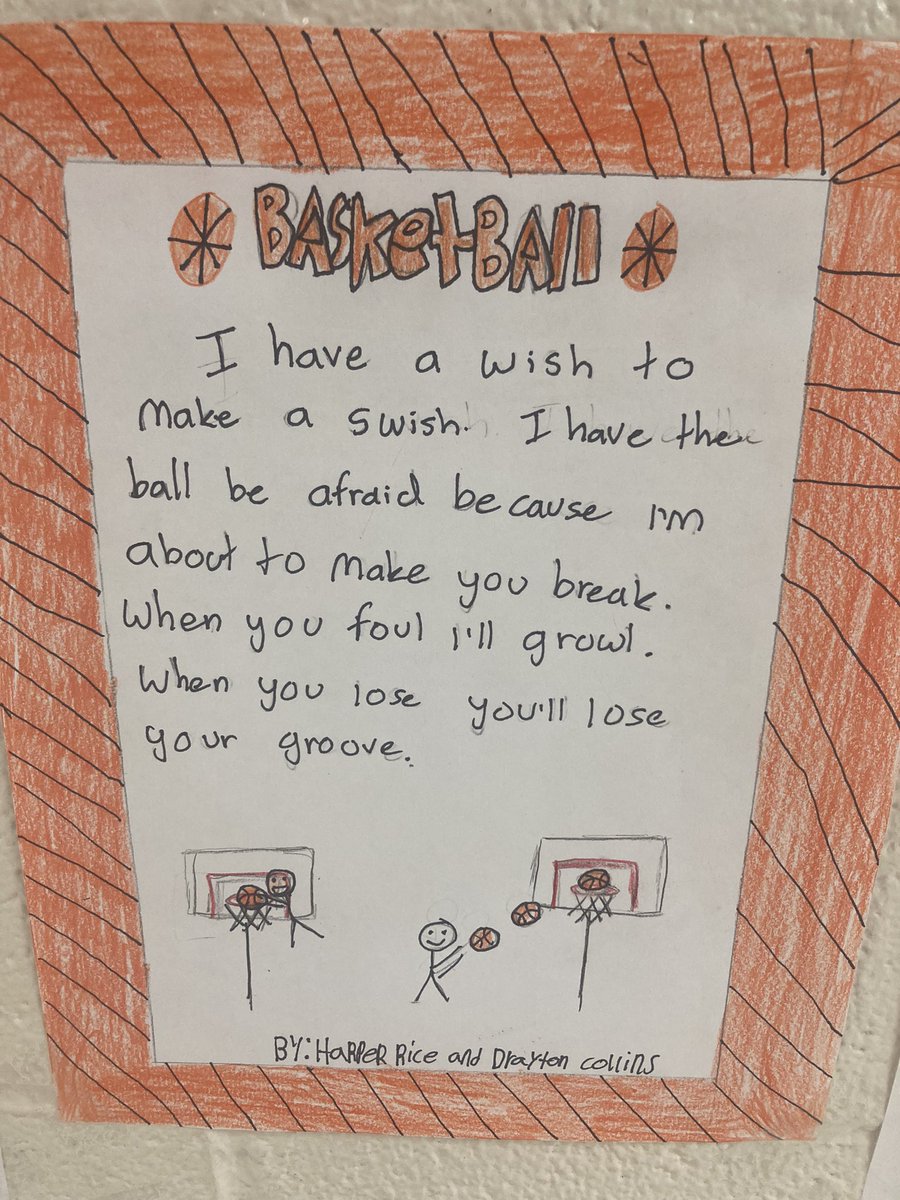 BASketBAll
I have a wish to
make a swish. I have the
ball be afraid because I'm
about to make you break.
When you foul I'll growl.
When you lose you'll lose
your groove.
BY: HARPER RICE and Drayton collins